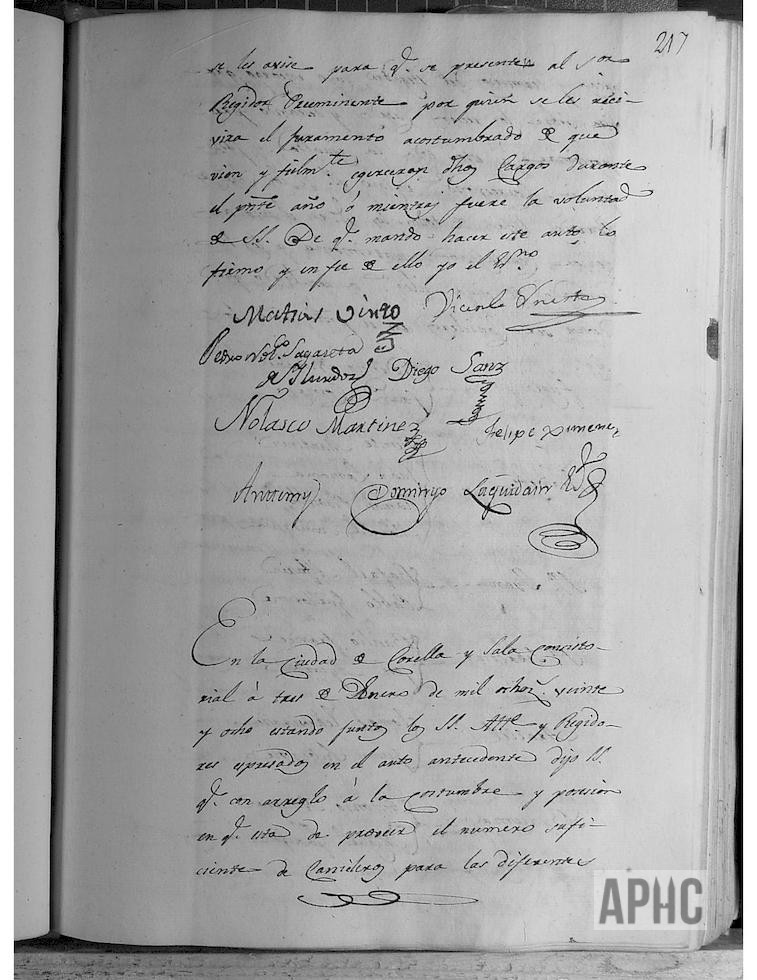 217
se les avise para q.e se presenten al S.or
Regidor Preeminente por quien se les reci-
vira el juramento acostumbrado de que
vien y fielm.te egerceran dhos Cargos durante
el pnte año ó mientras fuere la voluntad
de SS. De q.e mando hacer este auto, lo
firmo y en fee de ello yo el Es.no
Matias Vinzo Vicente
Pedro Sagaseta
de Ylurdoz Diego Sanz
Nolasco Martinez Felipe Ximenez
Antemi Domingo Laquidain
En la Ciudad de Corella y Sala Consisto-
rial á tres de Enero de mil ochoz.s veinte
y ocho estando juntos los SS. Alt.e y Regido-
res espresados en el auto antecedente dijo SS.
q.e con arreglo á la Costumbre y posesion
en q.e esta de proveer el numero sufi-
ciente de para las diferentes
APHC